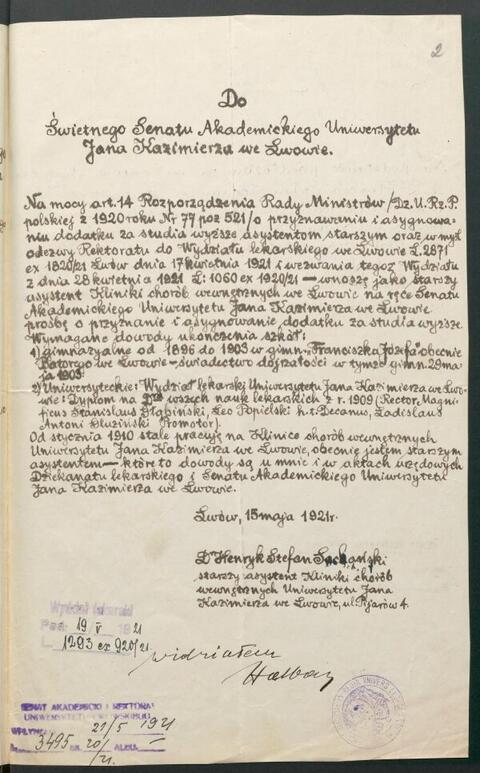 2
Do
Świetnego Senatu Akademickiego Uniwersytetu
Jana Kazimierza we Lwowie.
Na mocy art. 14 Rozporządzenia Rady Ministrów /Dz. U. Rz. P.
polskiej z 1920 roku Nr 77 poz 521/ o przyznawaniu i asygnowa-
niu dodatku za studia wyższe asystentom starszym oraz w myśl
odezwy Rektoratu do Wydziału lekarskiego we Lwowie L. 2871
ex 1820/21 Lwów dnia 17 kwietnia 1921 i wezwania tegoż Wydziału
z dnia 28 kwietnia 1921 L: 1060 ex 1920/21 — wnoszę jako starszy
asystent Kliniki chorób wewnętrznych we Lwowie na ręce Senatu
Akademickiego Uniwersytetu Jana Kazimierza we Lwowie
prośbę o przyznanie i asygnowanie dodatku za studia wyższe.
Wymagane dowody ukończenia szkół:
1) gimnazyalne od 1896 do 1903 w gimn. „Franciszka Józefa" obecnie
Batorego we Lwowie — świadectwo dojrzałości w tymże gimn. 29 ma-
ja 1903.
2) Uniwersyteckie: Wydział lekarski Uniwersytetu Jana Kazimierza we Lwo-
wie: Dyplom na Dra wszech nauk lekarskich z r. 1909 (Rector Magni-
ficus Stanislaus Głąbiński, Leo Popielski h.t. Decanus, Ladislaus
Antoni Gluziński Promotor).
Od stycznia 1910 stale pracuję na Klinice chorób wewnętrznych
Uniwersytetu Jana Kazimierza we Lwowie, obecnie jestem starszym
asystentem — które to dowody są u mnie i w aktach urzędowych
Dziekanatu lekarskiego i Senatu Akademickiego Uniwersytetu
Jana Kazimierza we Lwowie.
Lwów, 15 maja 1921 r.
Dr Henryk Stefan
starszy asystent Kliniki chorób
wewnętrznych Uniwersytetu Jana
Kazimierza we Lwowie, ul. Pijarów 4.
Wydział lekarski
19/V 1921
L. 1293 ex 920/21.
widziałem
Halban
SENAT AKADEMICKI I REKTORAT
UNIWERSYTETU LWOWSKIEGO
21/5 1921
3495 20/21.